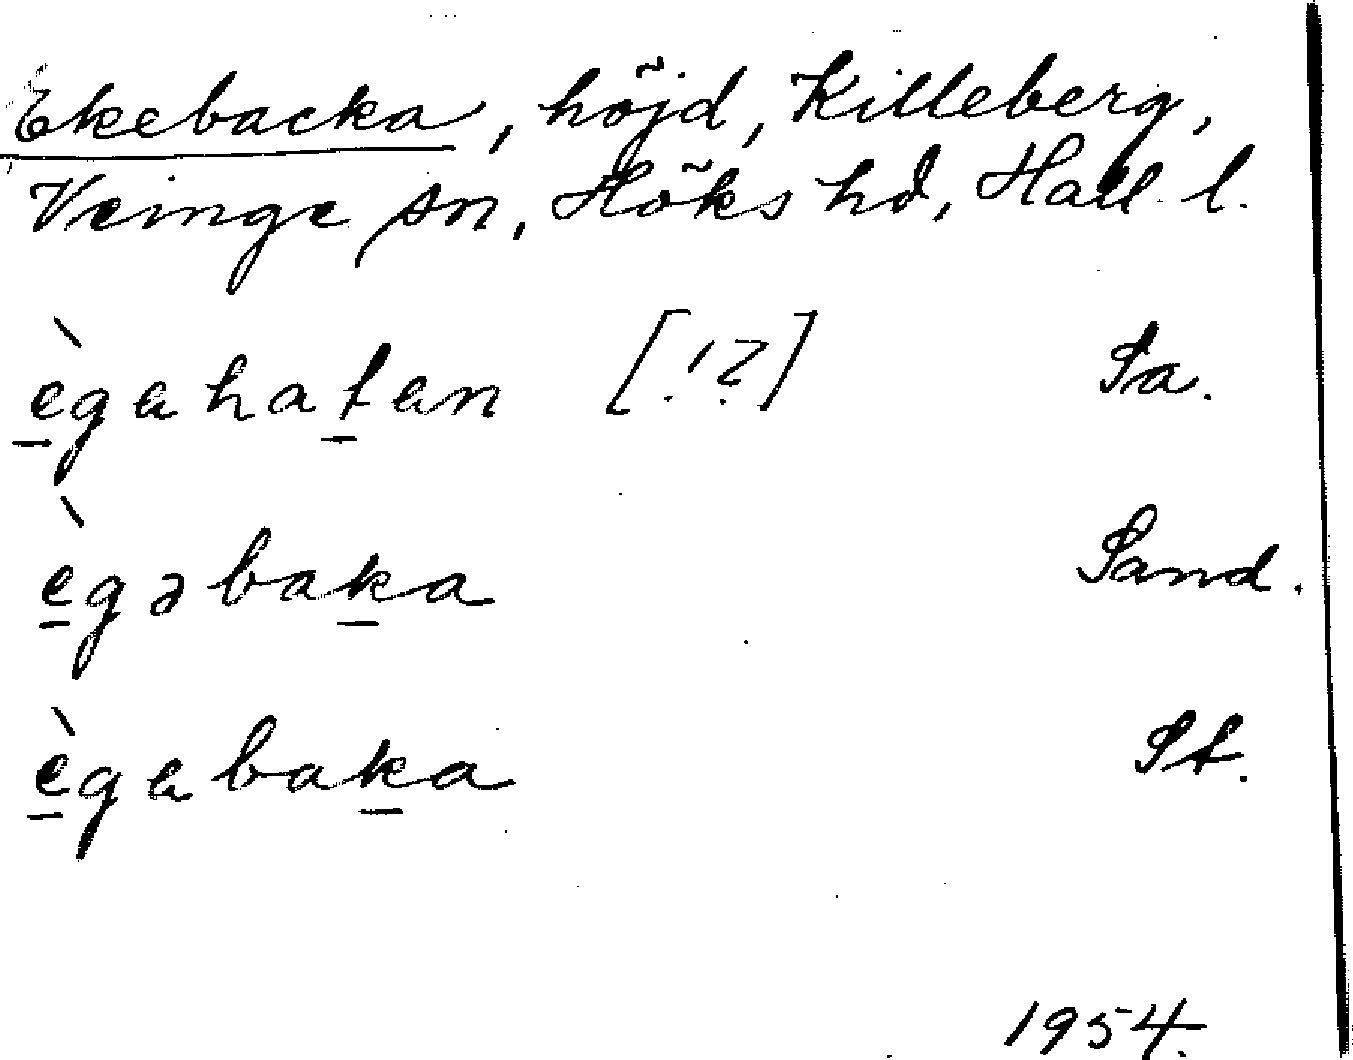 Ekebacka, höjd, Killeberg,
Veinge sn, Höks hd, Hall. l.
è̱gahaṯan [!?] Sa.
è̱gəbaḵa Sand.
è̱gabaḵa St.
1954.